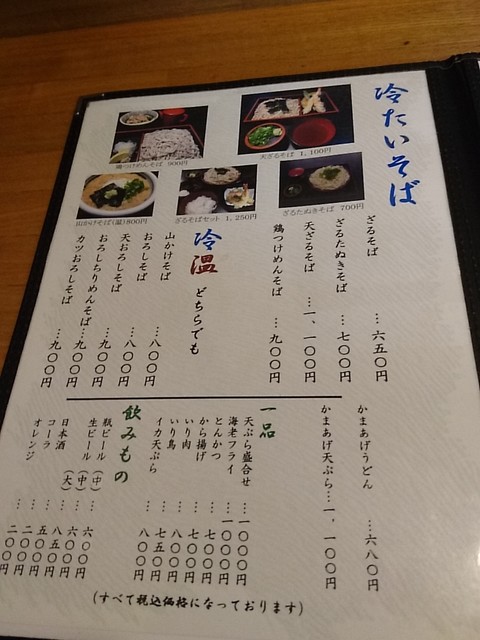 冷たいそば
天ざるそば 1,100円
鶏つけめんそば 900円
ざるたぬきそば 700円
ざるそばセット 1,250円
山かけそば(温)800円
ざるそば …六五〇円
ざるたぬきそば …七〇〇円
天ざるそば …一、一〇〇円
鶏つけめんそば …九〇〇円
冷温 どちらでも
山かけそば …八〇〇円
おろしそば …八〇〇円
天おろしそば …九〇〇円
おろしちりめんそば…九〇〇円
カツおろしそば …九〇〇円
かまあげうどん …六八〇円
かまあげ天ぷら…一、一〇〇円
一品
天ぷら盛合せ …一〇〇〇円
海老フライ …一〇〇〇円
とんかつ …七〇〇円
から揚げ …七〇〇円
いり肉 …八〇〇円
いり鳥 …七五〇円
イカ天ぷら …八〇〇円
飲みもの
瓶ビール (中) …六〇〇円
生ビール (中) …六〇〇円
(大) …八五〇円
日本酒
コーラ …二〇〇円
オレンジ …二〇〇円
(すべて税込価格になっております)